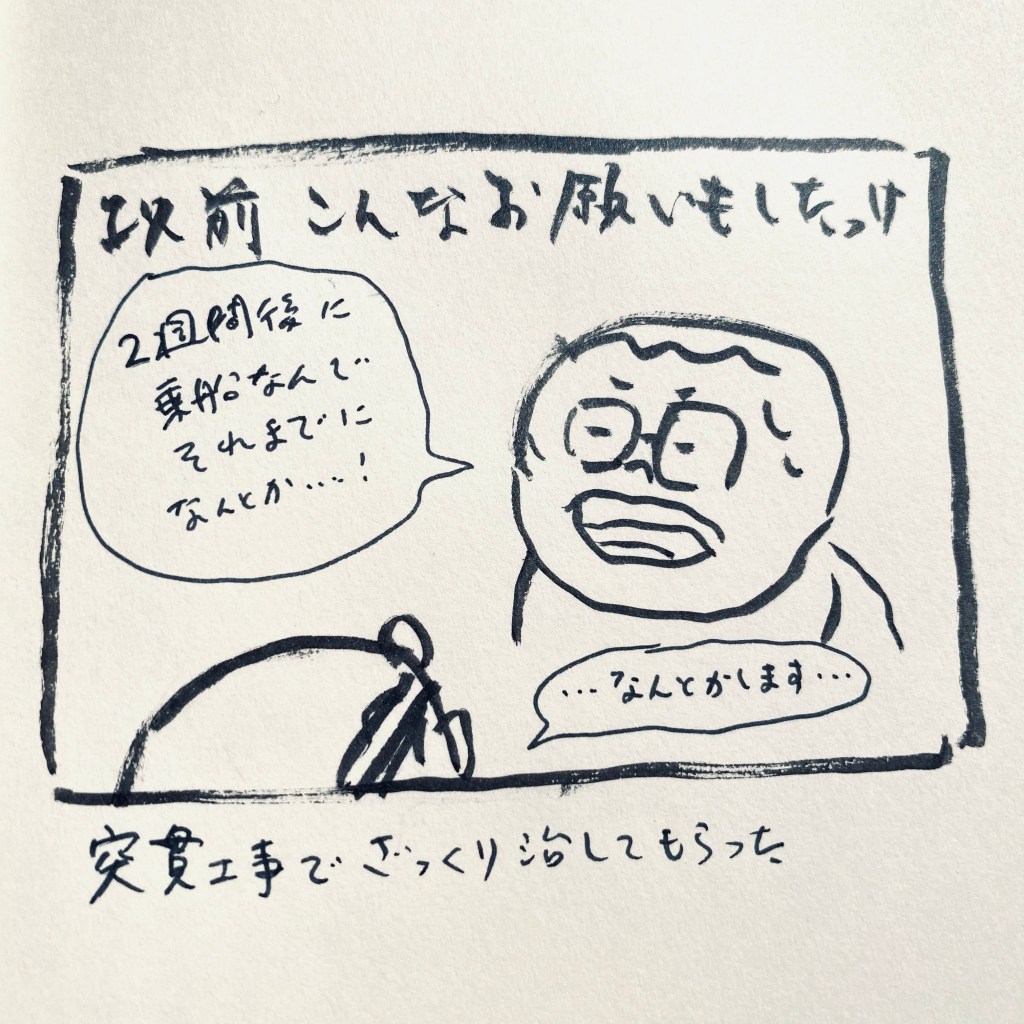 以前こんなお願いもしたっけ
2週間後に
乗船なんで
それまでに
なんとか・・・・!
・・・なんとかします・・・
突貫工事でざっくり治してもらった